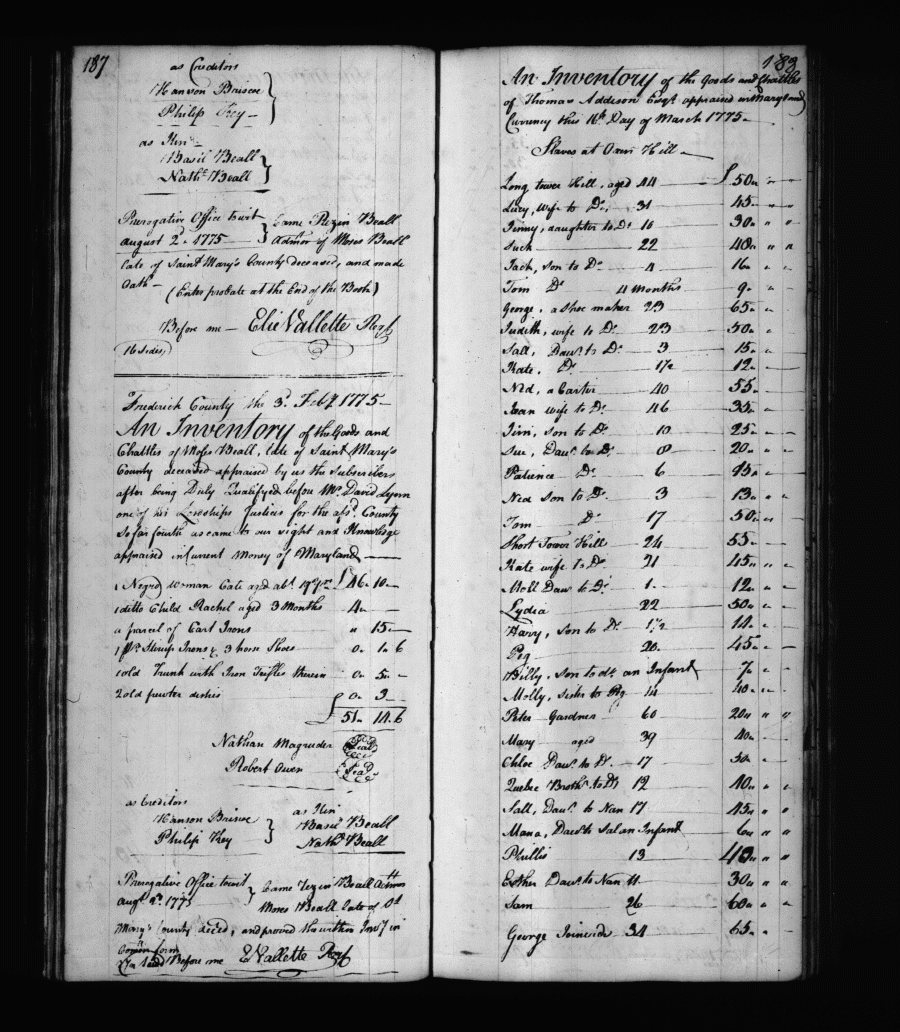 187
as Creditors
Hanson Briscoe
Philip Key
as Kin
Basil Beall
Nath.l Beall
Prerogative Office towit
August 2.d 1775
Came Rezin Beall
Admor of Moses Beall
late of Saint Mary's County deceased, and made
Oath
(Enter probate at the End of the Book)
Before me Elie Vallette Regr
16 Sides
Frederick County the 3.d Feb.y 1775
An Inventory of the Goods and
Chattles of Moses Beall, late of Saint Mary's
County deceased appraised by us the Subscribers
after being Duly Qualifyed before Mr David Lynn
one of his Lordships Justices for the afs.d County
So far fourth as came to our sight and Knowledge
appraised in Current Money of Maryland
1 Negro Woman Cate aged ab.t £ 46 10
1 ditto Child Rachel aged 3 Months 4
a parcel of Cart Irons " 15
1 p.r Stirrup Irons & 3 horse Shoes 0 1 6
1 old Trunk with Iron Trifles therein 0 5
2 old pewter dishes 0 3
£ 51 14 6
Nathan Magruder Seal
Robert Owen Seal
as Creditors
Hanson Briscoe
Philip Key
as Kin
Basil Beall
Nath.l Beall
Prerogative Office towit
Aug.t 2.d 1775
Came Rezin Beall Admor
Moses Beall late of S.t
Mary's County deced, and proved the within Inv.y in
Comon form
Before me E Vallette Regr
188
An Inventory of the Goods and Chattles
of Thomas Addison Esq.r appraised in Maryland
Currency this 16.th Day of March 1775
Slaves at Oxon Hill
Long tower Hill, aged 44 £ 50 " "
Lucy, Wife to D.o 31 45 " "
Jenny, daughter to D.o 10 30 " "
Suck 22 40 " "
Jack, son to D.o 4 16 " "
Tom D.o 4 Months 9 "
George, a Shoe maker 23 65 "
Judith, wife to D.o 23 50 "
Sall, Daur. to D.o 3 15 "
Kate, D.o 1 1/2 12
Ned, a Carter 40 55
Jean wife to D.o 46 35
Jim, son to D.o 10 25
Sue, Daur. to D.o 8 20 "
Patience D.o 6 15 "
Ned son to D.o 3 13 " "
Tom D.o 17 50 "
Short Tower Hill 24 55
Kate wife to D.o 21 45 " "
Moll Daur to D.o 1 12 " "
Lydia 22 50 " "
Harry, son to D.o 1 1/2 14 "
Peg 20 45 "
Billy, Son to d.o an Infant 7 "
Molly, sister to Peg 14 40 "
Peter Gardner 60 20 " "
Mary aged 39 40 "
Chloe Daur. to D.o 17 50 "
Quebec Broth.r to D.o 12 40 " "
Sall, Daur. to Nan 17 45 " "
Mana, Daur. to Sal an Infant 6 " "
Phillis 13 40 " "
Esther Daur. to Nan 11 30 " "
Sam 26 60 " "
George 34 65 "